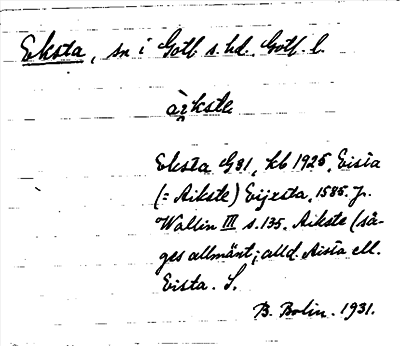 Eksta, sn i Gotl. s. hd. Gotl. l.
àikste
Eksta G31, kb 1925, Eista
(= Aikste) Eijxsta, 1585. Jr.
Wallin III s. 135. Aikste (sä-
ges allmänt; alld. Aista ell.
Eista. S.
B. Bolin. 1931.